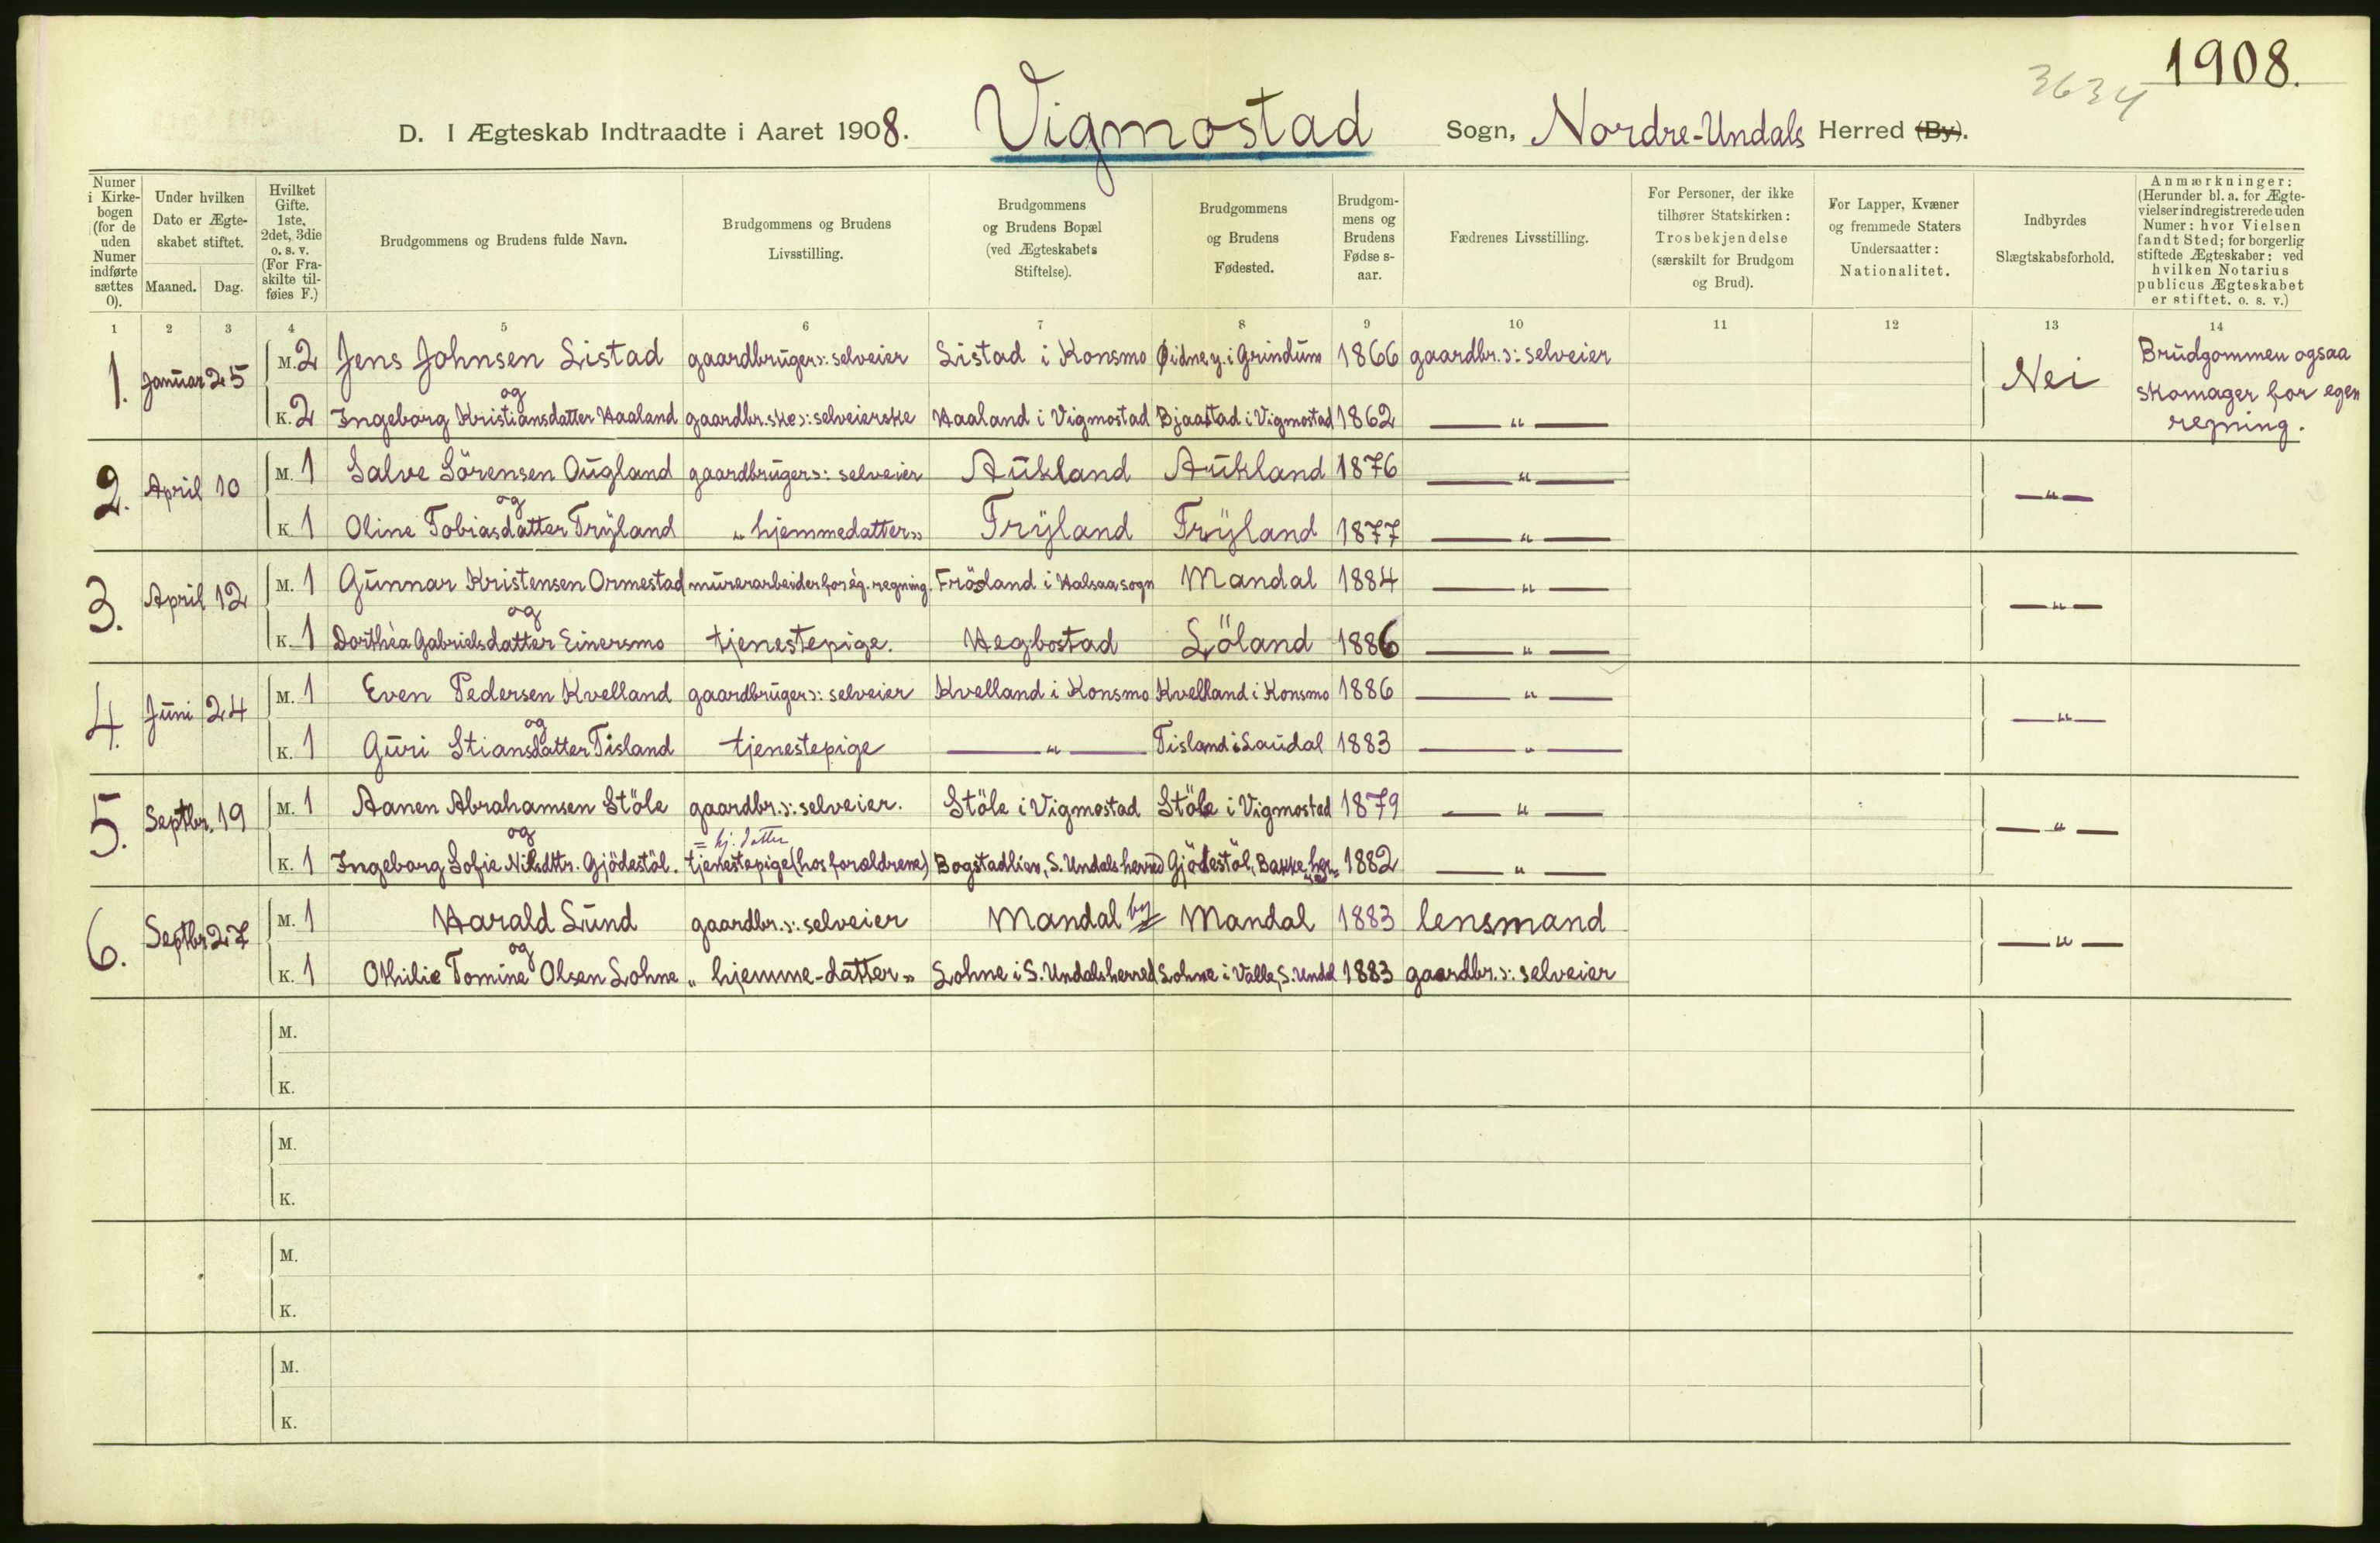 1908.
3634
D. I Ægteskab Indtraadte i Aaret 1908. Vigmostad Sogn, Nordre-Undals Herred (By).
Numer i Kirkebogen (for de uden Numer indførte sættes 0).
Under hvilken Dato er Ægteskabet stiftet.
Maaned. Dag.
Hvilket Gifte. 1ste, 2det, 3die o. s. v. (For Fraskilte tilføies F.)
Brudgommens og Brudens fulde Navn.
Brudgommens og Brudens Livsstilling.
Brudgommens og Brudens Bopæl (ved Ægteskabets Stiftelse).
Brudgommens og Brudens Fødested.
Brudgommens og Brudens Fødselsaar.
Fædrenes Livsstilling.
For Personer, der ikke tilhører Statskirken: Trosbekjendelse (særskilt for Brudgom og Brud).
For Lapper, Kvæner og fremmede Staters Undersaatter: Nationalitet.
Indbyrdes Slægtskabsforhold.
Anmærkninger: (Herunder bl. a. for Ægtevielser indregistrerede uden Numer: hvor Vielsen fandt Sted; for borgerlig stiftede Ægteskaber: ved hvilken Notarius publicus Ægteskabet er stiftet, o. s. v.)
1 2 3 4 5 6 7 8 9 10 11 12 13 14
1. Januar 25 M. 2 Jens Johnsen Listad gaardbruger ɔ: selveier Listad i Konsmo Øidne y. i Grindum 1866 gaardbr. ɔ: selveier Nei Brudgommen ogsaa skomager for egen regning.
og
K. 2 Ingeborg Kristiansdatter Haaland gaardbr.ske ɔ: selveierske Haaland i Vigmostad Bjaastad i Vigmostad 1862 — " —
2. April 10 M. 1 Salve Sörensen Ougland gaardbruger ɔ: selveier Aukland Aukland 1876 — " — — " —
og
K. 1 Oline Tobiasdatter Tryland „ hjemmedatter „ Tryland Tryland 1877 — " —
3. April 12 M. 1 Gunnar Kristensen Ormestad murerarbeider for eg. regning. Frösland i Halsaa sogn Mandal 1884 — " — — " —
og
K. 1 Dorthea Gabrielsdatter Einersmo tjenestepige. Hegbostad Löland 1886 — " —
4. Juni 24 M. 1 Even Pedersen Kvelland gaardbruger ɔ: selveier Kvelland i Konsmo Kvelland i Konsmo 1886 — " — — " —
og
K. 1 Guri Stiansdatter Tisland tjenestepige — " — Tisland i Laudal 1883 — " —
5. Septbr. 19 M. 1 Aanen Abrahamsen Stöle gaardbr. ɔ: selveier. Stöle i Vigmostad Stöle i Vigmostad 1879 — " — — " —
og = hj. datter
K. 1 Ingeborg Sofie Nilsdttr. Gjödestöl. tjenestepige (hos forældrene) Bogstadlien, S. Undals herred Gjödestöl, Bakke her. 1882 — " —
6. Septbr 27 M. 1 Harald Lund gaardbr. ɔ: selveier Mandal by Mandal 1883 lensmand — " —
og
K. 1 Othilie Tomine Olsen Lohne „ hjemme-datter „ Lohne i S. Undals herred Lohne i Valle, S. Undal 1883 gaardbr. ɔ: selveier
M.
K.
M.
K.
M.
K.
M.
K.